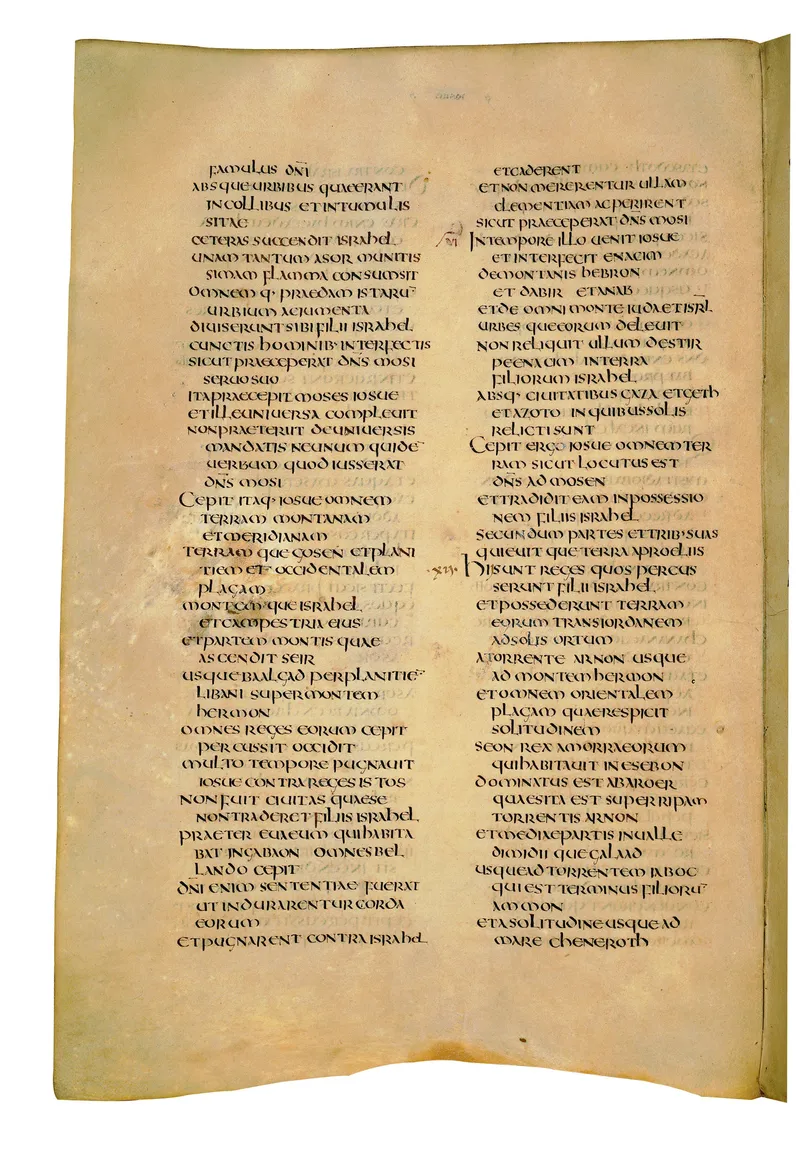 FAMULUS DNI
ABSQUE URBIBUS QUAE ERANT
IN COLLIBUS ET IN TUMULIS
SITAE
CETERAS SUCCENDIT ISRAHEL
UNAM TANTUM ASOR MUNITIS
SIMAM FLAMMA CONSUMSIT
OMNEM Q· PRAEDAM ISTARU‾
URBIUM AC IUMENTA
DIUISERUNT SIBI FILII ISRAHEL
CUNCTIS HOMINIB· INTERFECTIS
SICUT PRAECEPERAT DNS MOSI
SERUO SUO
ITA PRAECEPIT MOSES IOSUE
ET ILLE UNIUERSA COMPLEUIT
NON PRAETERIIT DE UNIUERSIS
MANDATIS NE UNUM QUIDE‾
UERBUM QUOD IUSSERAT
DNS MOSI
CEPIT ITAQ· IOSUE OMNEM
TERRAM MONTANAM
ET MERIDIANAM
TERRAM QUE GOSEN ET PLANI
TIEM ET OCCIDENTALEM
PLAGAM
MONTEM QUE ISRAHEL
ET CAMPESTRIA EIUS
ET PARTEM MONTIS QUAE
ASCENDIT SEIR
USQUE BAALGAD PER PLANITIE‾
LIBANI SUPER MONTEM
HERMON
OMNES REGES EORUM CEPIT
PERCUSSIT OCCIDIT
MULTO TEMPORE PUGNAUIT
IOSUE CONTRA REGES ISTOS
NON FUIT CIUITAS QUAE SE
NON TRADERET FILIIS ISRAHEL
PRAETER EUAEUM QUI HABITA
BAT IN GABAON OMNES BEL
LANDO CEPIT
DNI ENIM SENTENTIAE FUERAT
UT INDURARENTUR CORDA
EORUM
ET PUGNARENT CONTRA ISRAHEL
ET CADERENT
ET NON MERERENTUR ULLAM
CLEMENTIAM AC PERIRENT
SICUT PRAECEPERAT DNS MOSI
IN TEMPORE ILLO UENIT IOSUE
ET INTERFECIT ENACIM
DE MONTANIS HEBRON
ET DABIR ET ANAB
ET DE OMNI MONTE IUDA ET ISRL
URBES QUE EORUM DELEUIT
NON RELIQUIT ULLUM DE STIR
PE ENACIM IN TERRA
FILIORUM ISRAHEL
ABSQ· CIUITATIBUS GAZA ET GETH
ET AZOTO IN QUIBUS SOLIS
RELICTI SUNT
CEPIT ERGO IOSUE OMNEM TER
RAM SICUT LOCUTUS EST
DNS AD MOSEN
ET TRADIDIT EAM IN POSSESSIO
NEM FILIIS ISRAHEL
SECUNDUM PARTES ET TRIB· SUAS
QUIEUIT QUE TERRA A PROELIIS
XII· HII SUNT REGES QUOS PERCUS
SERUNT FILII ISRAHEL
ET POSSEDERUNT TERRAM
EORUM TRANS IORDANEM
AD SOLIS ORTUM
A TORRENTE ARNON USQUE
AD MONTEM HERMON
ET OMNEM ORIENTALEM
PLAGAM QUAE RESPICIT
SOLITUDINEM
SEON REX AMORRAEORUM
QUI HABITAUIT IN ESEBON
DOMINATUS EST AB AROER
QUAE SITA EST SUPER RIPAM
TORRENTIS ARNON
ET MEDIAE PARTIS IN UALLE
DIMIDII QUE GALAAD
USQUE AD TORRENTEM IABOC
QUI EST TERMINUS FILIORU‾
AMMON
ET A SOLITUDINE USQUE AD
MARE CHENEROTH